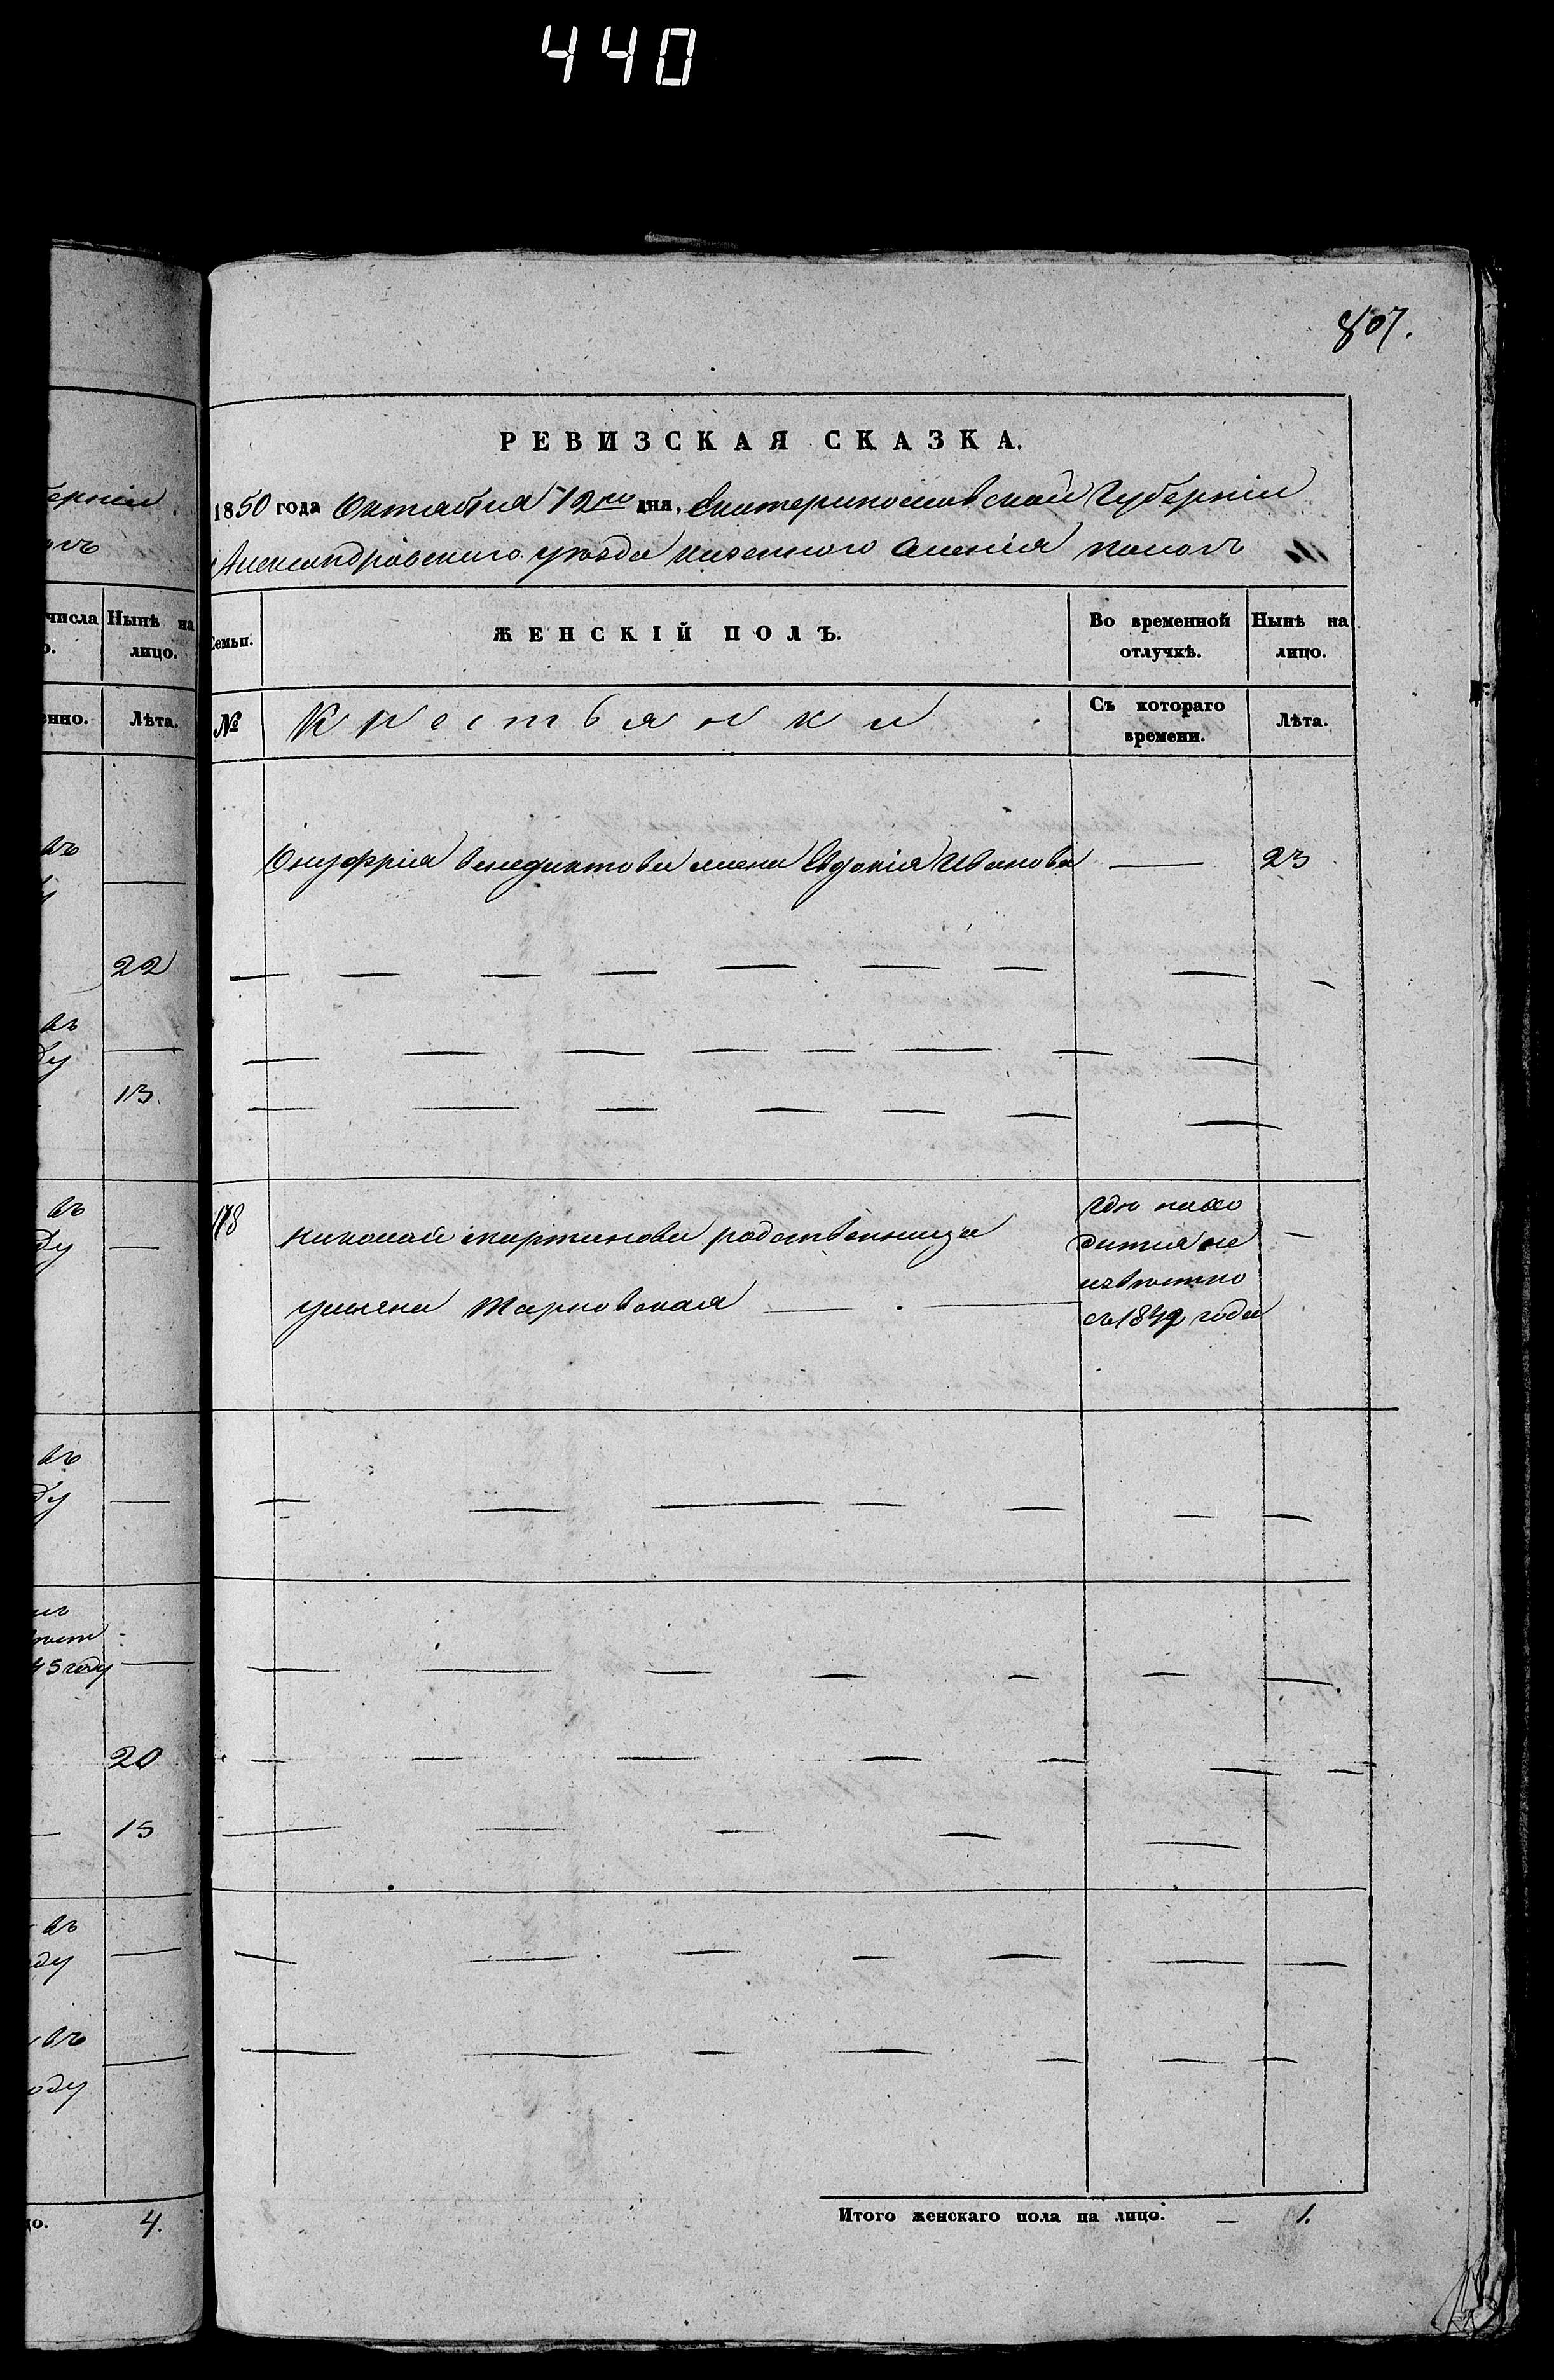 440
807.
РЕВИЗСКАЯ СКАЗКА.
1850 года Октября 12го дня, Екатеринославской Губернiи
Александровскаго уѣзда казеннаго имѣнiя
Семьи.
ЖЕНСКIЙ ПОЛЪ.
Во временной отлучкѣ.
Нынѣ на лицо.
№
Крестьянки
Съ котораго времени.
Лѣта.
Онуфрiя Венедиктова жена Евдокiя Иванова — 23
178
Николая Мартинова родственница
Ульяна Тарновская
гдѣ нахо
дится не
извѣстно
съ 1849 года
Итого женскаго пола на лицо. — 1.
ернiи
числа
Нынѣ на
лицо.
енно.
Лѣта.
въ
22
въ
ду
13.
въ
ду
въ
ду
45 году
20
15
въ
оду
въ
оду
цо.
4.